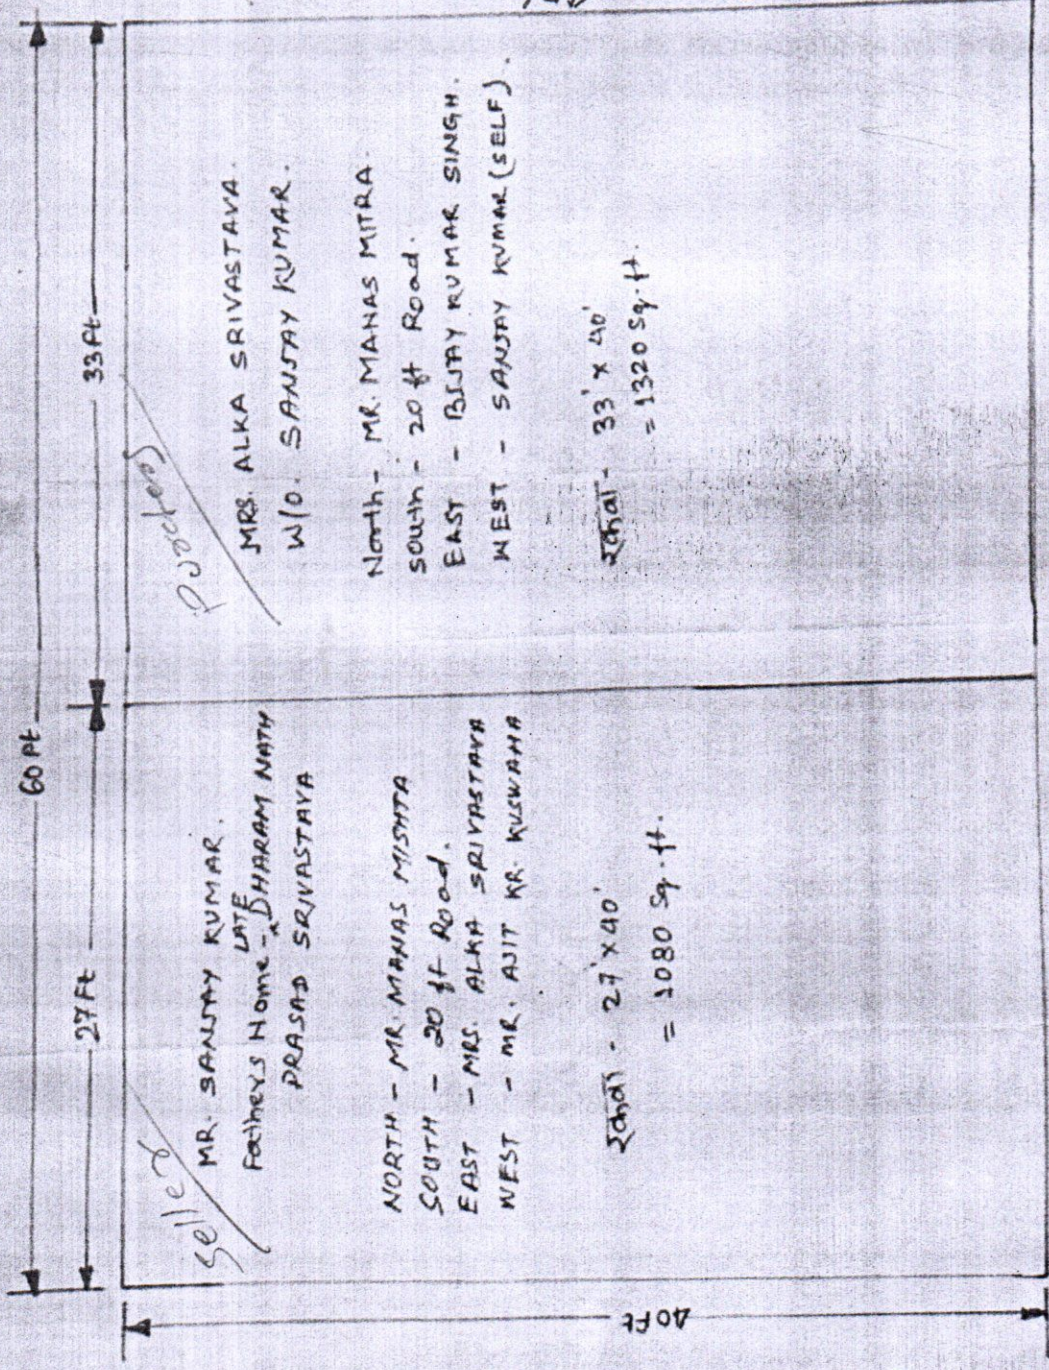 60 Ft
27 Ft
33 Ft
40 Ft
seller
MR. SANJAY KUMAR.
LATE
Fathers Home - DHARAM NATH
PRASAD SRIVASTAVA
NORTH - MR. MANAS MISHTA
SOUTH - 20 ft Road.
EAST - MRS. ALKA SRIVASTAVA
WEST - MR. AJIT KR. KUSWAHA
रकबा - 27' x 40'
= 1080 Sq. ft.
MRS. ALKA SRIVASTAVA.
W/O. SANJAY KUMAR.
North - MR. MANAS MITRA.
South - 20 ft Road.
EAST - BIJAY KUMAR SINGH.
WEST - SANJAY KUMAR (SELF).
रकबा - 33' x 40'
= 1320 Sq. ft.